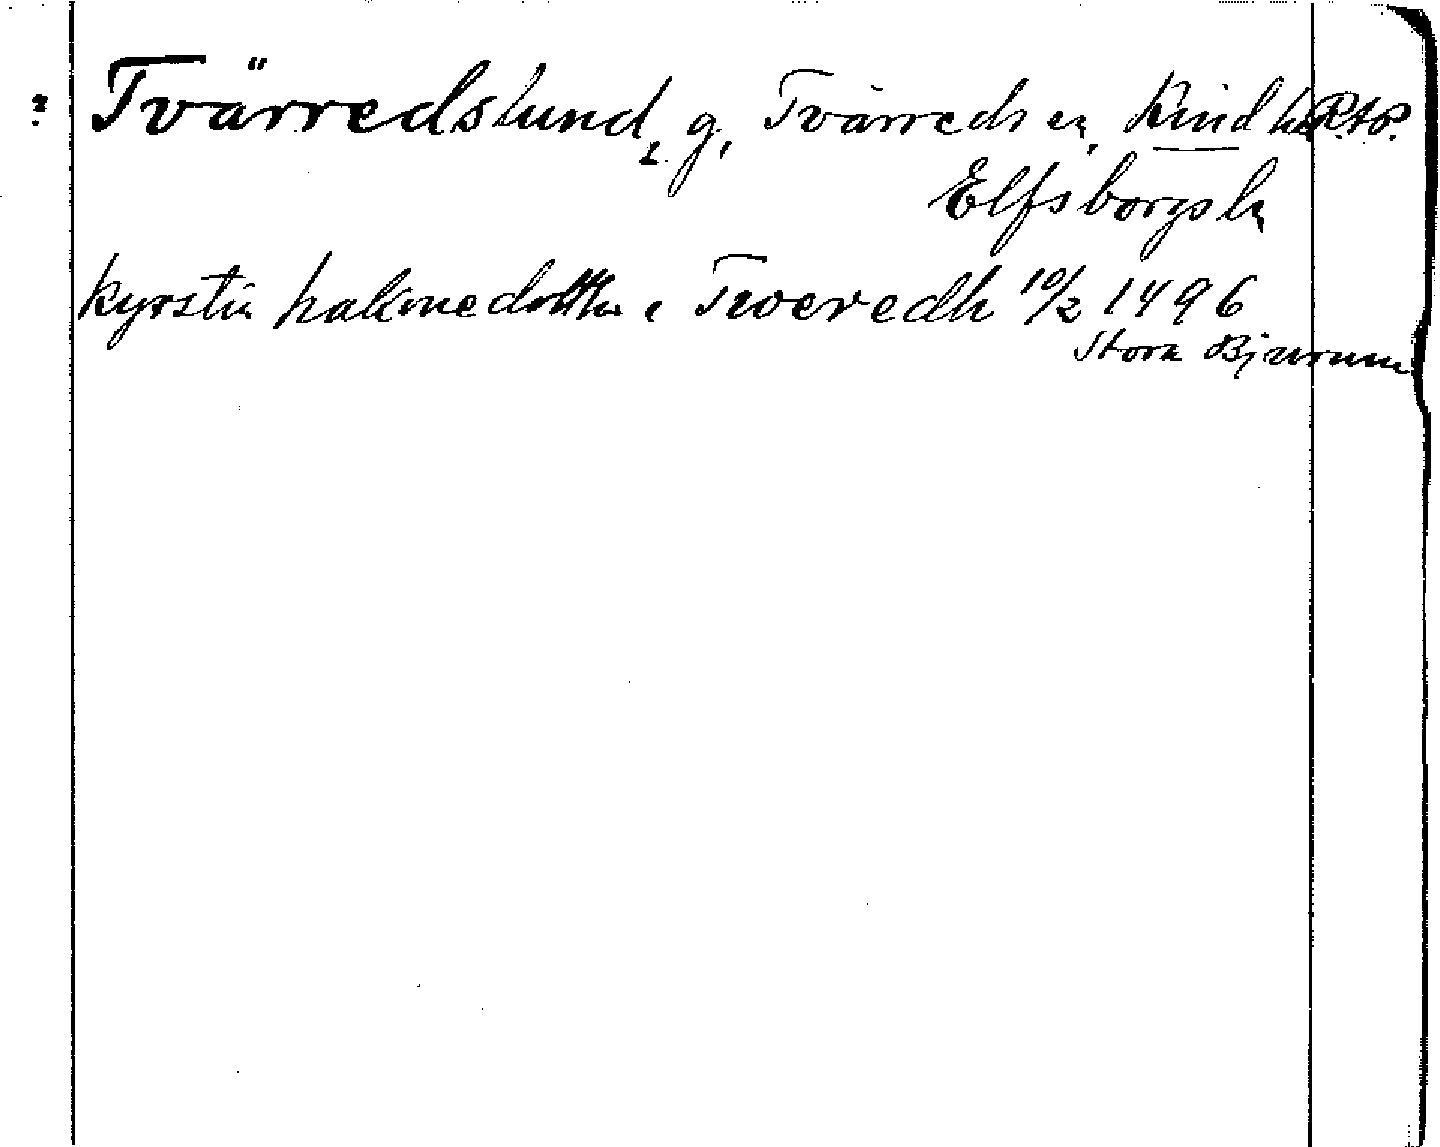 ? Tvärredslund, g, Tvärreds sn, Kind hd R.t.P.
Elfsborgs ln
kyrstin hakmedotther i Twoeredh 10/2 1496
Stora Bjurum